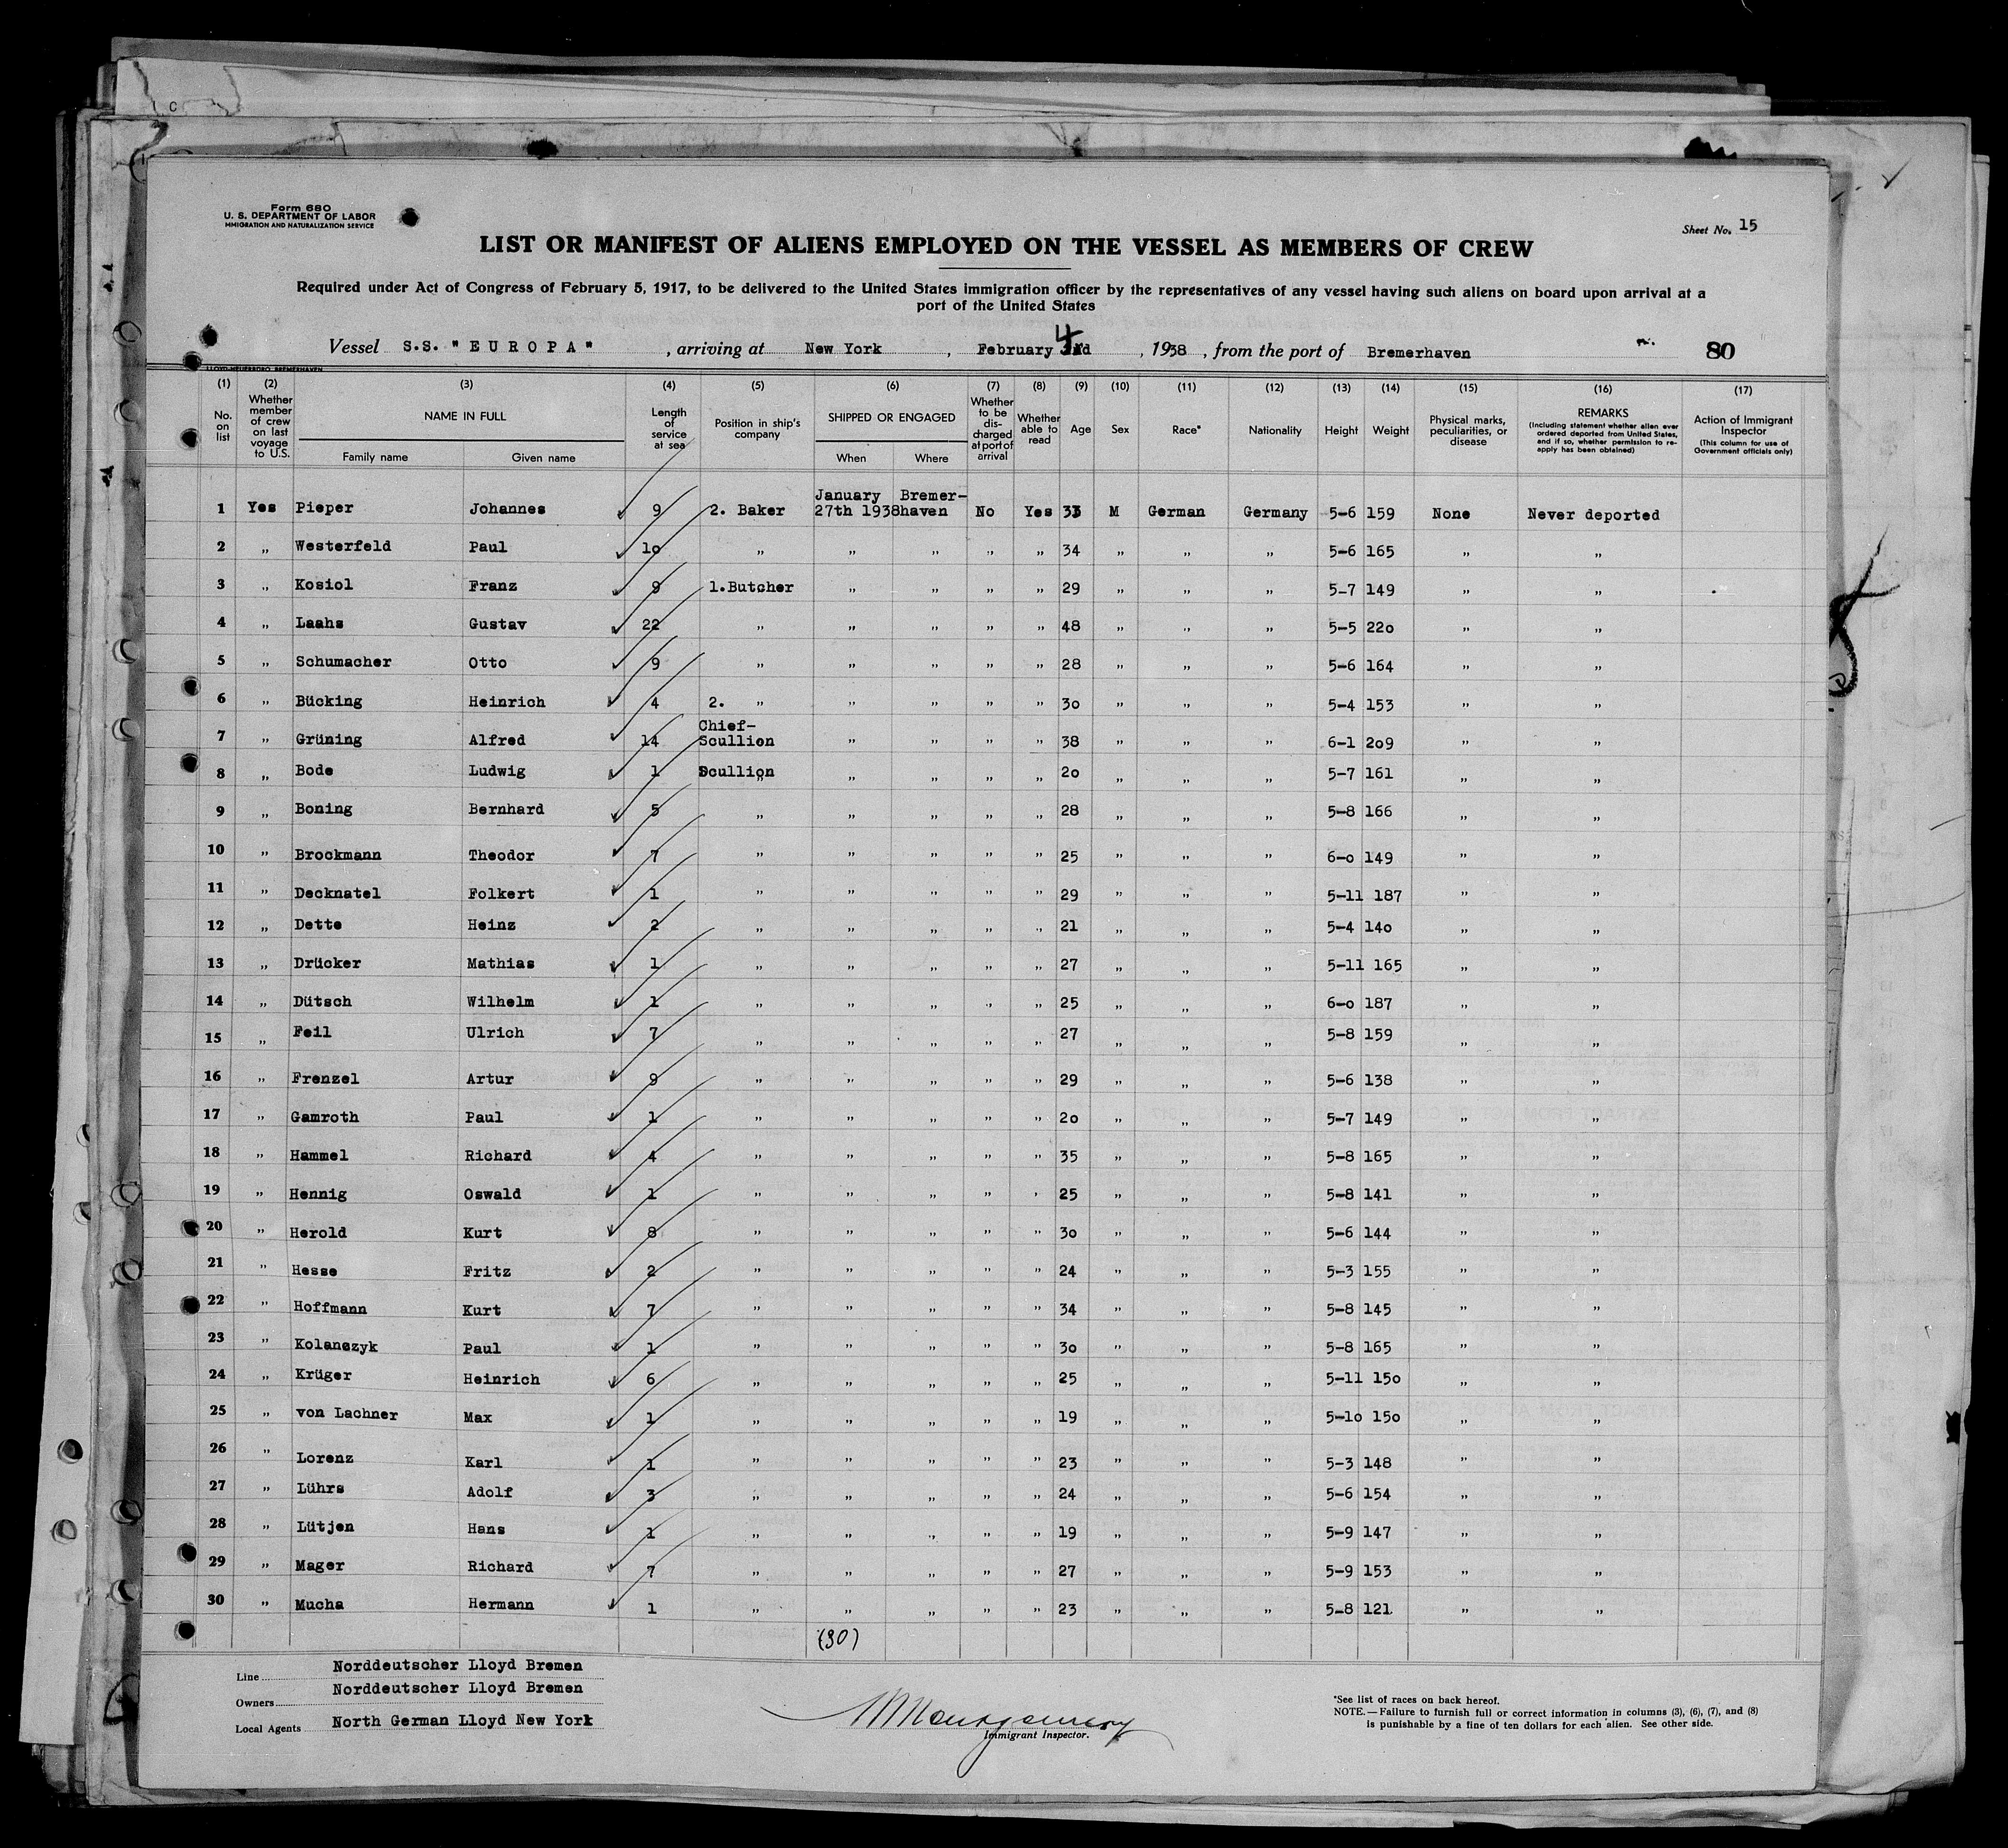 Form 680
U. S. DEPARTMENT OF LABOR
IMMIGRATION AND NATURALIZATION SERVICE
Sheet No. 15
LIST OR MANIFEST OF ALIENS EMPLOYED ON THE VESSEL AS MEMBERS OF CREW
Required under Act of Congress of February 5, 1917, to be delivered to the United States immigration officer by the representatives of any vessel having such aliens on board upon arrival at a
port of the United States
Vessel S.S. "EUROPA", arriving at New York, February 4, 1938, from the port of Bremerhaven 80
(1) (2) (3) (4) (5) (6) (7) (8) (9) (10) (11) (12) (13) (14) (15) (16) (17)
No. on list
Whether member of crew on last voyage to U.S.
NAME IN FULL
Family name Given name
Length of service at sea
Position in ship's company
SHIPPED OR ENGAGED
When Where
Whether to be discharged at port of arrival
Whether able to read
Age
Sex
Race*
Nationality
Height
Weight
Physical marks, peculiarities, or disease
REMARKS
(Including statement whether alien ever ordered deported from United States, and if so, whether permission to reapply has been obtained)
Action of Immigrant Inspector
(This column for use of Government officials only)
1 Yes Pieper Johannes 9 2. Baker January 27th 1938 Bremer-haven No Yes 33 M German Germany 5-6 159 None Never deported
2 „ Westerfeld Paul 10 „ „ „ „ „ 34 „ „ „ 5-6 165 „ „
3 „ Kosiol Franz 9 1.Butcher „ „ „ „ 29 „ „ „ 5-7 149 „ „
4 „ Laahs Gustav 22 „ „ „ „ „ 48 „ „ „ 5-5 220 „ „
5 „ Schumacher Otto 9 „ „ „ „ „ 28 „ „ „ 5-6 164 „ „
6 „ Bücking Heinrich 4 2. „ „ „ „ „ 30 „ „ „ 5-4 153 „ „
7 „ Grüning Alfred 14 Chief-Scullion „ „ „ „ 38 „ „ „ 6-1 209 „ „
8 „ Bode Ludwig 1 Scullion „ „ „ „ 20 „ „ „ 5-7 161 „ „
9 „ Boning Bernhard 5 „ „ „ „ „ 28 „ „ „ 5-8 166 „ „
10 „ Brockmann Theodor 7 „ „ „ „ „ 25 „ „ „ 6-0 149 „ „
11 „ Decknatel Folkert 1 „ „ „ „ „ 29 „ „ „ 5-11 187 „ „
12 „ Dette Heinz 2 „ „ „ „ „ 21 „ „ „ 5-4 140 „ „
13 „ Drücker Mathias 1 „ „ „ „ „ 27 „ „ „ 5-11 165 „ „
14 „ Dütsch Wilhelm 1 „ „ „ „ „ 25 „ „ „ 6-0 187 „ „
15 „ Feil Ulrich 7 „ „ „ „ „ 27 „ „ „ 5-8 159 „ „
16 „ Frenzel Artur 9 „ „ „ „ „ 29 „ „ „ 5-6 138 „ „
17 „ Gamroth Paul 1 „ „ „ „ „ 20 „ „ „ 5-7 149 „ „
18 „ Hammel Richard 4 „ „ „ „ „ 35 „ „ „ 5-8 165 „ „
19 „ Hennig Oswald 1 „ „ „ „ „ 25 „ „ „ 5-8 141 „ „
20 „ Herold Kurt 8 „ „ „ „ „ 30 „ „ „ 5-6 144 „ „
21 „ Hesse Fritz 2 „ „ „ „ „ 24 „ „ „ 5-3 155 „ „
22 „ Hoffmann Kurt 7 „ „ „ „ „ 34 „ „ „ 5-8 145 „ „
23 „ Kolanczyk Paul 1 „ „ „ „ „ 30 „ „ „ 5-8 165 „ „
24 „ Krüger Heinrich 6 „ „ „ „ „ 25 „ „ „ 5-11 150 „ „
25 „ von Lachner Max 1 „ „ „ „ „ 19 „ „ „ 5-10 150 „ „
26 „ Lorenz Karl 1 „ „ „ „ „ 23 „ „ „ 5-3 148 „ „
27 „ Lührs Adolf 3 „ „ „ „ „ 24 „ „ „ 5-6 154 „ „
28 „ Lütjen Hans 1 „ „ „ „ „ 19 „ „ „ 5-9 147 „ „
29 „ Mager Richard 7 „ „ „ „ „ 27 „ „ „ 5-9 153 „ „
30 „ Mucha Hermann 1 „ „ „ „ „ 23 „ „ „ 5-8 121 „ „
(30)
Line Norddeutscher Lloyd Bremen
Owners Norddeutscher Lloyd Bremen
Local Agents North German Lloyd New York
Montgomery
Immigrant Inspector.
*See list of races on back hereof.
NOTE.—Failure to furnish full or correct information in columns (3), (6), (7), and (8)
is punishable by a fine of ten dollars for each alien. See other side.